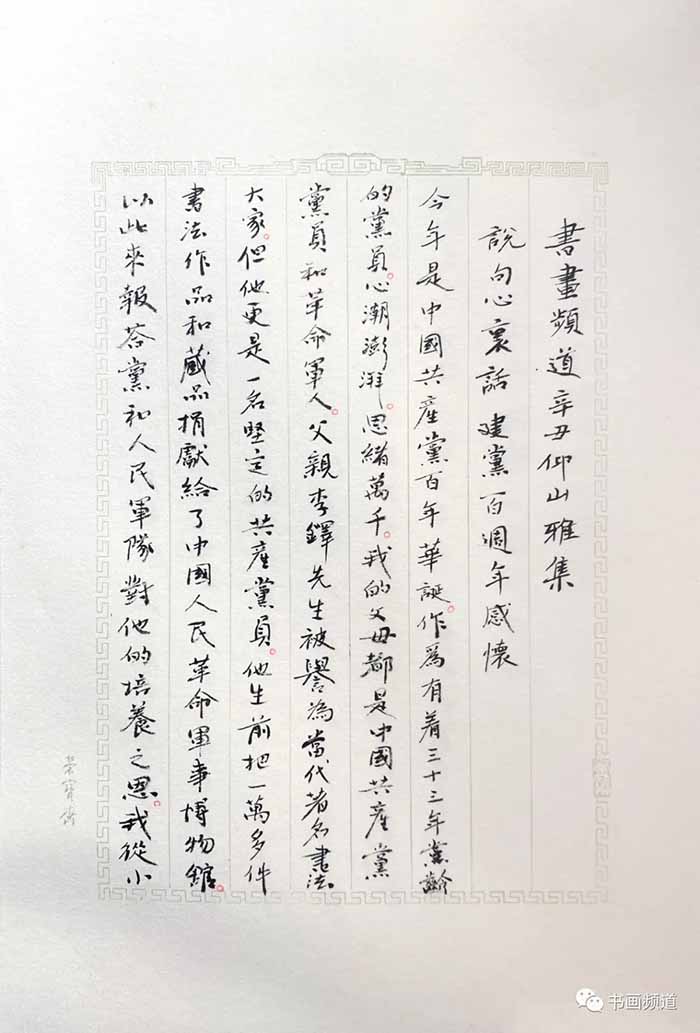 書畫頻道辛丑仰山雅集
說句心裏話 建黨百週年感懷
今年是中國共產黨百年華誕。作爲有着三十三年黨齡
的黨員。心潮澎湃。思緒萬千。我的父母都是中國共產黨
黨員和革命軍人。父親李鐸先生被譽為當代著名書法
大家。但他更是一名堅定的共產黨員。他生前把一萬多件
書法作品和藏品捐獻給了中國人民革命軍事博物館。
以此來報答黨和人民軍隊對他的培養之恩。我從小
榮寶齋
书画频道